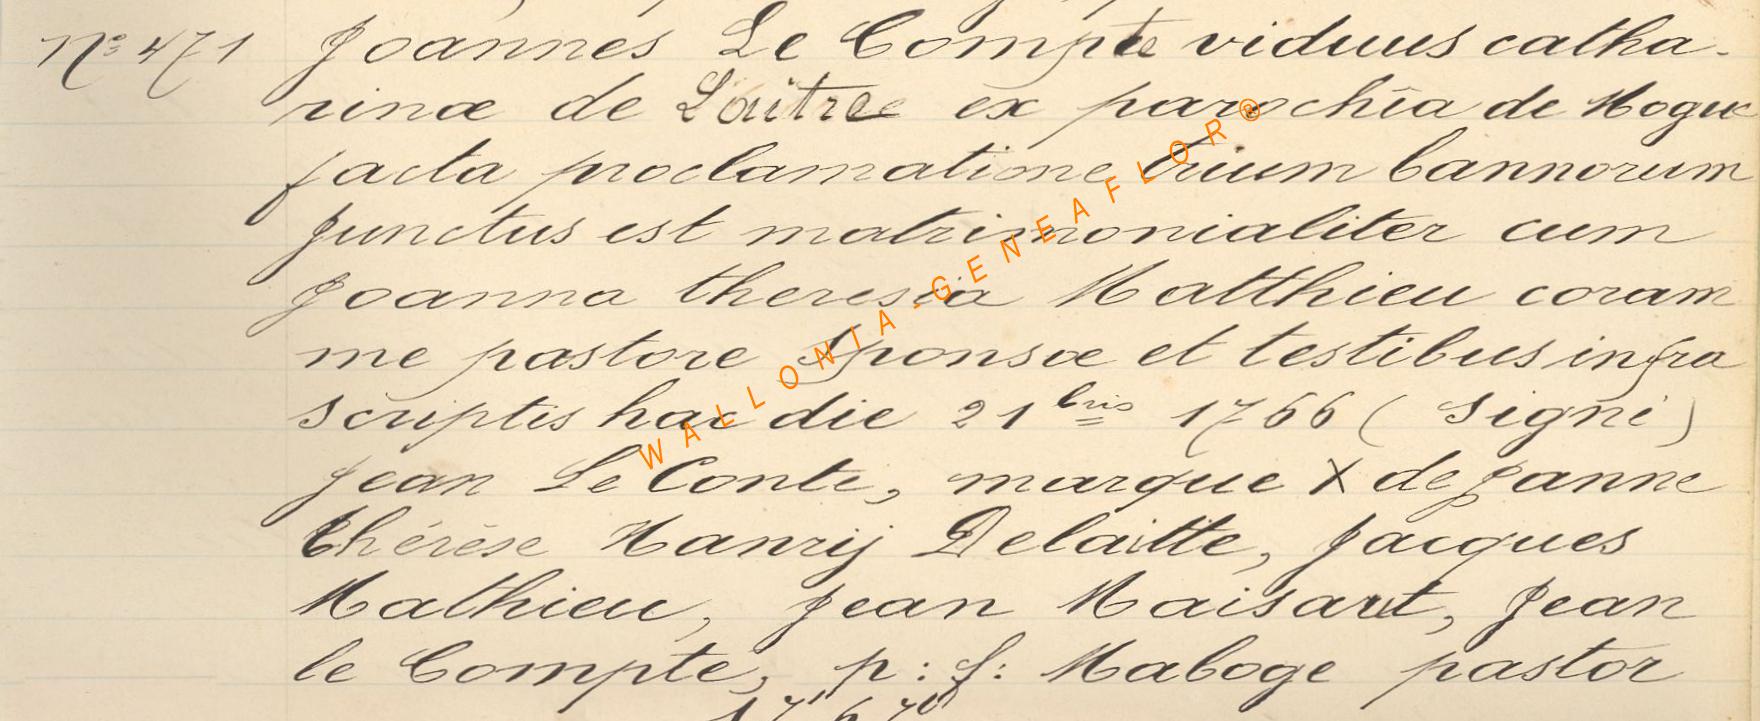 N° 471 Joannes Le Compte viduus catha-
rinæ de Laitre ex parochia de Hogue
facta proclamatione trium bannorum
junctus est matrimonialiter cum
Joanna theresia Matthieu coram
me pastore Sponsæ et testibus infra
scriptis hac die 21 bris 1766 ( signé )
Jean Le Conte, marque X de Janne
thérèse Hanrij Delaitte, Jacques
Mathieu, Jean Maisaut, Jean
le Compte, p: f: Maboge pastor
WALLONIA-GENEAFLOR®